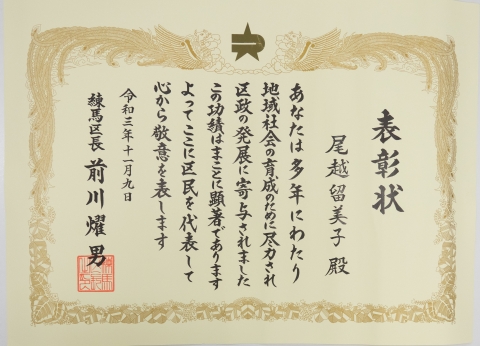 表彰状
尾越留美子 殿
あなたは多年にわたり
地域社会の育成のために尽力され
区政の発展に寄与されました
この功績はまことに顕著であります
よってここに区民を代表して
心から敬意を表します
令和三年十一月九日
練馬区長 前川燿男